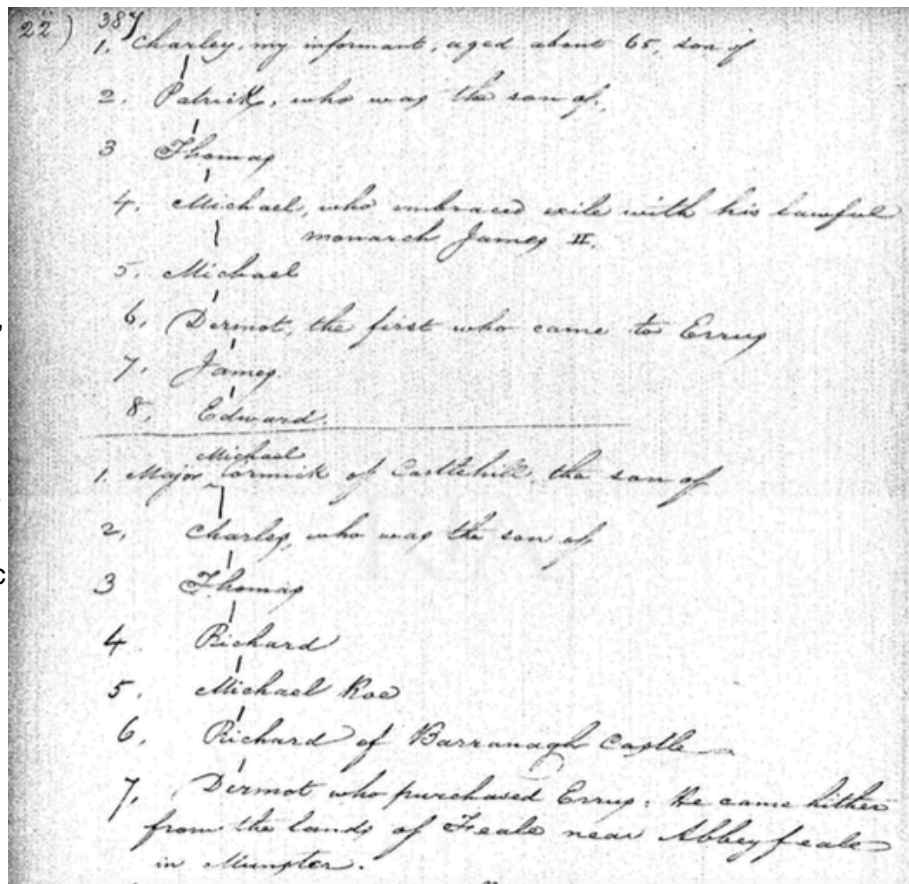 22) 387
1. Charley, my informant, aged about 65, son of
2. Patrick, who was the son of,
3 Thomas
4. Michael, who embraced exile with his lawful
monarch James II.
5. Michael
6. Dermot, the first who came to Errus
7. James.
8. Edward.
Michael
1. Major Cormick of Castlehill, the son of
2, Charley, who was the son of
3 Thomas
4 Richard
5. Michael Roe
6, Richard of Barranagh Castle
7, Dermot who purchased Errus: He came hither
from the lands of Feale near Abbeyfeale
in Munster.
RIA